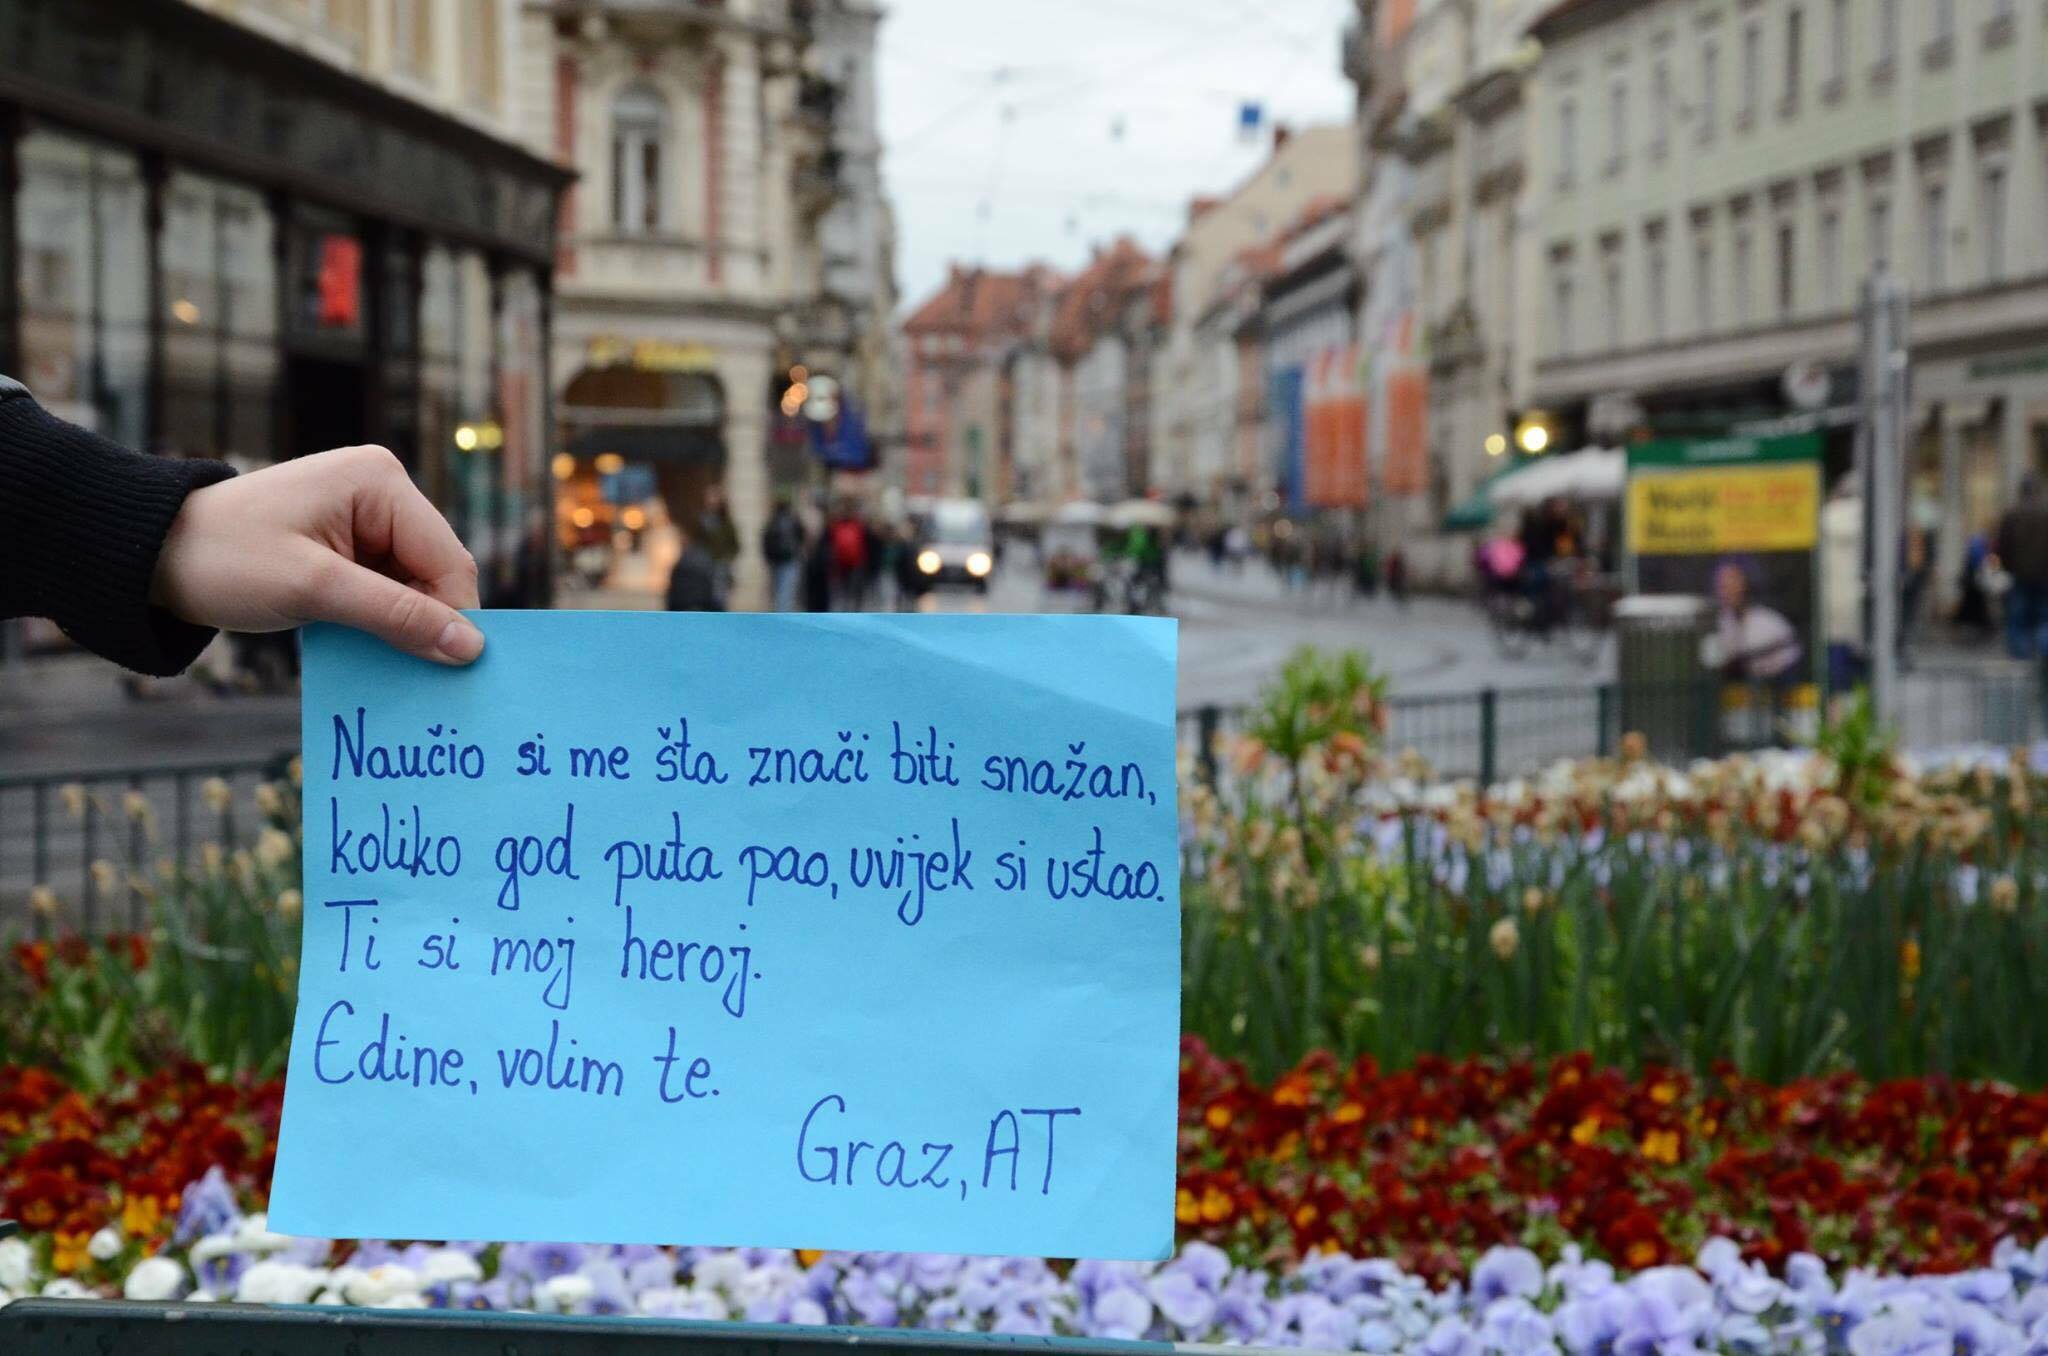 Naučio si me šta znači biti snažan,
koliko god puta pao, uvijek si ustao.
Ti si moj heroj.
Edine, volim te.
Graz, AT